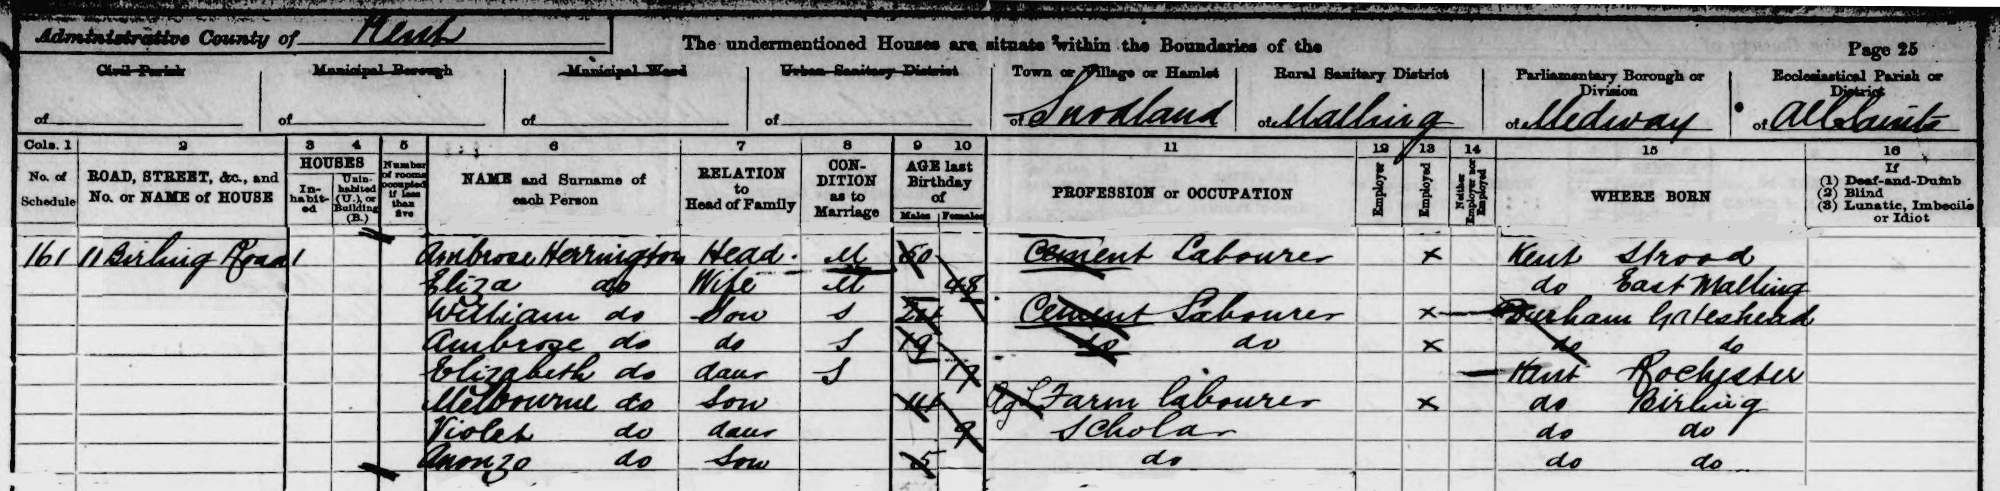 Administrative County of Kent
The undermentioned Houses are situate within the Boundaries of the
Page 25
Civil Parish Municipal Borough Municipal Ward Urban Sanitary District Town or Village or Hamlet Rural Sanitary District Parliamentary Borough or Division Ecclesiastical Parish or District
of of of of of Snodland of Malling of Medway of All Saints
Cols. 1 2 3 4 5 6 7 8 9 10 11 12 13 14 15 16
No. of Schedule ROAD, STREET, &c., and No. or NAME of HOUSE HOUSES In-habit-ed Unin-habited (U.), or Building (B.) Number of rooms occupied if less than five NAME and Surname of each Person RELATION to Head of Family CON-DITION as to Marriage AGE last Birthday of Males Females PROFESSION or OCCUPATION Employer Employed Neither Employer nor Employed WHERE BORN If (1) Deaf-and-Dumb (2) Blind (3) Lunatic, Imbecile or Idiot
161 11 Birling Road 1 Ambrose Herrington Head M 50 Cement Labourer x Kent Strood
Eliza do Wife M 48 do East Malling
William do Son S Cement Labourer x Durham Gateshead
Ambrose do do S 19 do do x do do
Elizabeth do daur S 17 Kent Rochester
Melbourne do Son 14 Ag L Farm labourer x do Birling
Violet do daur 9 Scholar do do
do Son 5 do do do